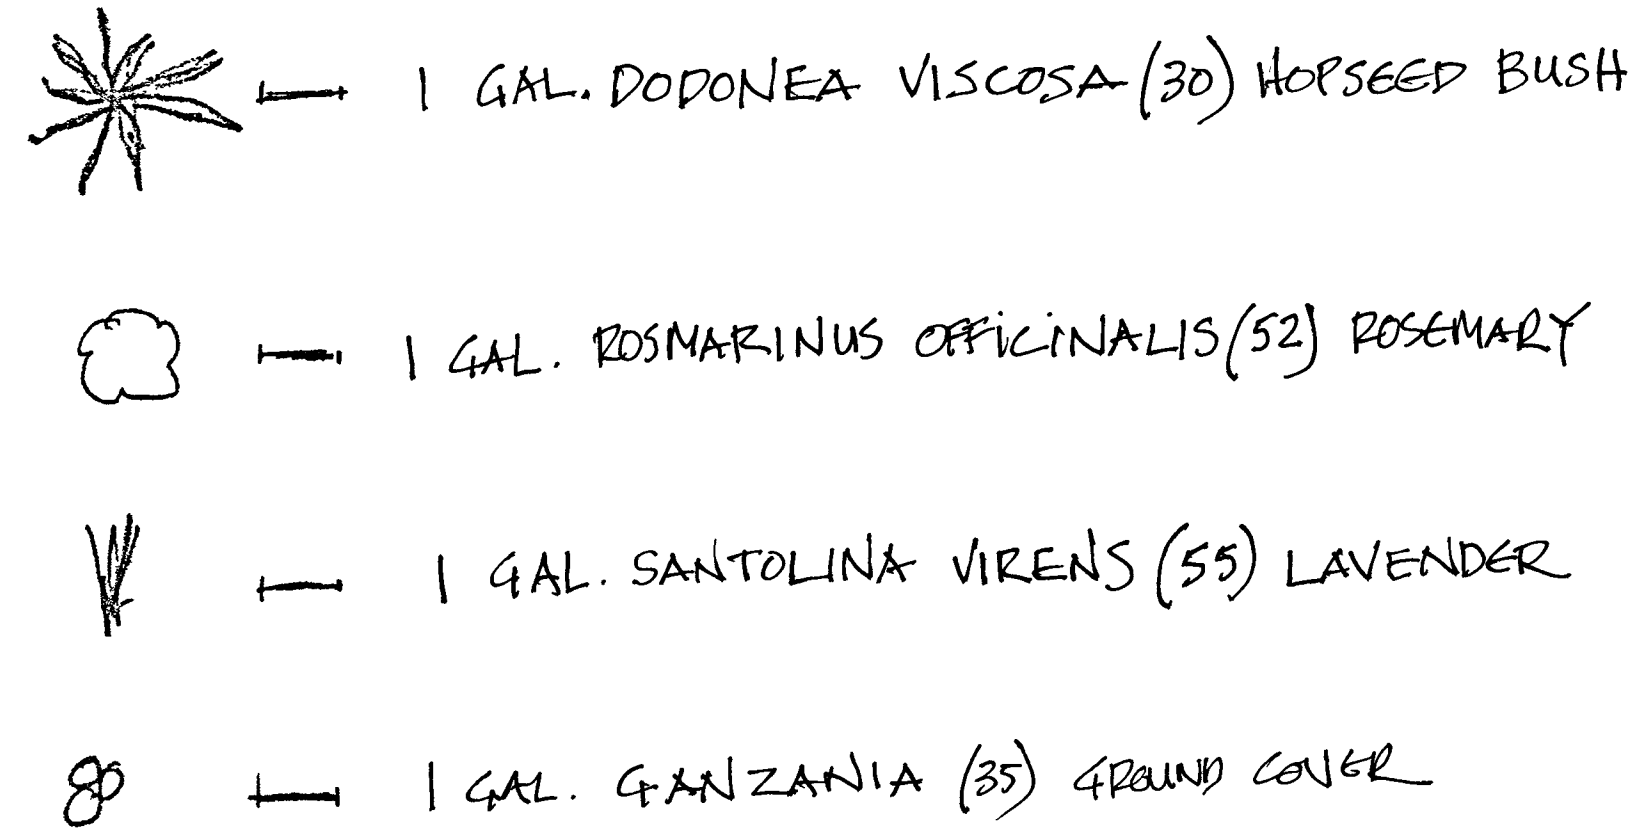 1 GAL. DODONEA VISCOSA (30) HOPSEED BUSH
1 GAL. ROSMARINUS OFFICINALIS (52) ROSEMARY
1 GAL. SANTOLINA VIRENS (55) LAVENDER
1 GAL. GANZANIA (35) GROUND COVER